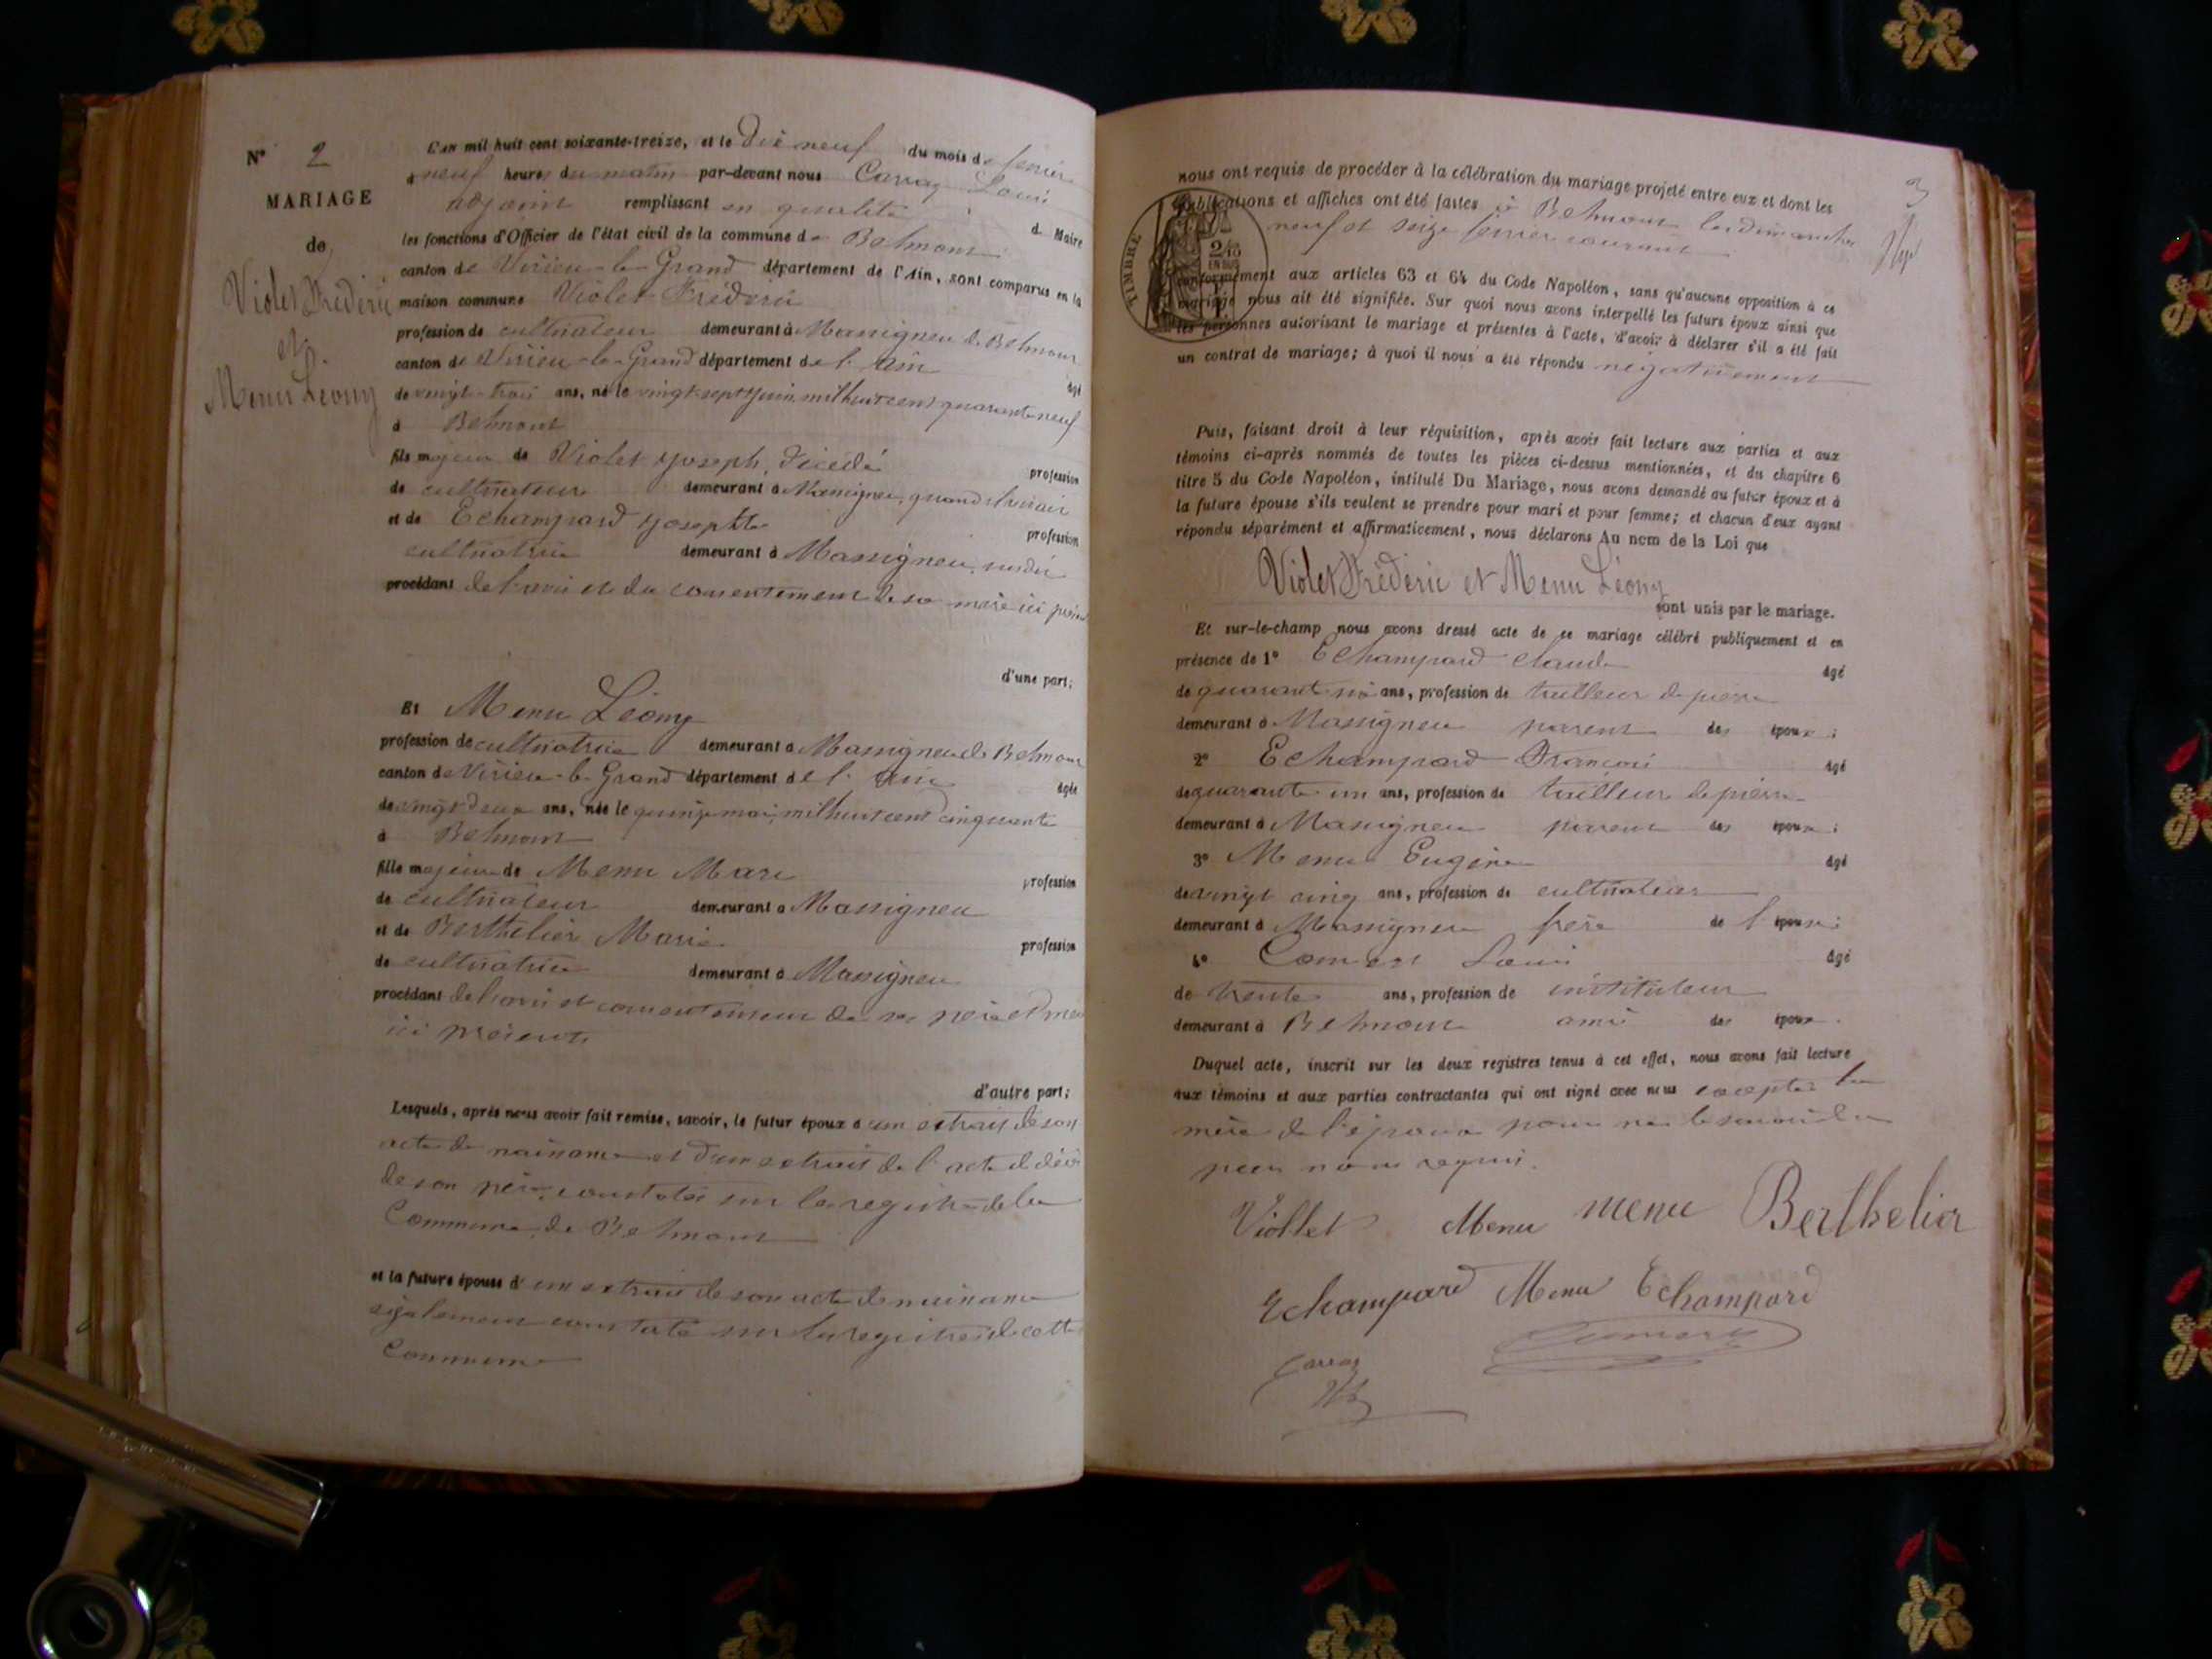 N° 2
MARIAGE
de
Violet Frédéric
et
Menu Léony
L'an mil huit cent soixante-treize, et le Dix neuf du mois de fevrier
à neuf heures du matin par-devant nous Carraz Louis
adjoint remplissant en qualité d Maire
les fonctions d'Officier de l'état civil de la commune de Belmont
canton de Virieu-le-Grand département de l'Ain, sont comparus en la
maison commune Violet Frédéric
profession de cultivateur demeurant à Massigneu de Belmont
canton de Virieu-le-Grand département de l'Ain âgé
de vingt-trois ans, né le vingt sept Juin mil huit cent quarante neuf
à Belmont
fils majeur de Violet Joseph, décédé profession
de cultivateur demeurant à Massigneu, quand il vivait
et de Echampard Josephte profession
cultivatrice demeurant à Massigneu, susdit
procédant de l'avis et du consentement de sa mère ici présente
d'une part;
Et Menu Léony
profession de cultivatrice demeurant à Massigneu de Belmont
canton de Virieu-le-Grand département de l'Ain âgée
de vingt deux ans, née le quinze mai, mil huit cent cinquante
à Belmont
fille majeure de Menu Marc profession
de cultivateur demeurant à Massigneu
et de Berthelier Marie profession
de cultivatrice demeurant à Massigneu
procédant de l'avis et consentement de ses père et mère
ici présents
d'autre part;
Lesquels, après nous avoir fait remise, savoir, le futur époux d'un extrait de son
acte de naissance et d'un extrait de l'acte de décès
de son père, constatés sur les registres de la
Commune de Belmont
et la future épouse d'un extrait de son acte de naissance
également constaté sur les registres de cette
Commune
3
nous ont requis de procéder à la célébration du mariage projeté entre eux et dont les
publications et affiches ont été faites à Belmont les dimanches
neuf et seize fevrier courant
TIMBRE
2/10
EN SUS
conformément aux articles 63 et 64 du Code Napoléon, sans qu'aucune opposition à ce
mariage nous ait été signifiée. Sur quoi nous avons interpellé les futurs époux ainsi que
les personnes autorisant le mariage et présentes à l'acte, d'avoir à déclarer s'il a été fait
un contrat de mariage; à quoi il nous a été répondu négativement
Puis, faisant droit à leur réquisition, après avoir fait lecture aux parties et aux
témoins ci-après nommés de toutes les pièces ci-dessus mentionnées, et du chapitre 6
titre 5 du Code Napoléon, intitulé Du Mariage, nous avons demandé au futur époux et à
la future épouse s'ils veulent se prendre pour mari et pour femme; et chacun d'eux ayant
répondu séparément et affirmativement, nous déclarons Au nom de la Loi que
Violet Frédéric et Menu Léony
sont unis par le mariage.
Et sur-le-champ nous avons dressé acte de ce mariage célébré publiquement et en
présence de 1° Echampard Claude âgé
de quarante six ans, profession de tailleur de pierre
demeurant à Massigneu parent des époux;
2° Echampard François âgé
de quarante un ans, profession de tailleur de pierre
demeurant à Massigneu parent des époux;
3° Menu Eugène âgé
de vingt cinq ans, profession de cultivateur
demeurant à Massigneu frère de l'épouse;
4° Comest Louis âgé
de trente ans, profession de instituteur
demeurant à Belmont ami des époux.
Duquel acte, inscrit sur les deux registres tenus à cet effet, nous avons fait lecture
aux témoins et aux parties contractantes qui ont signé avec nous excepter la
mère de l'époux pour ne le savoir de
peur n'a requis.
Viollet Menu menu Berthelier
Echampard Menu Echampard
Carraz